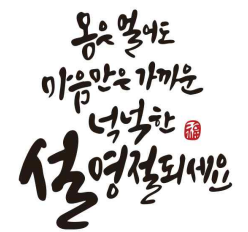 몸은 멀어도
마음만은 가까운
넉넉한
福
설명절되세요